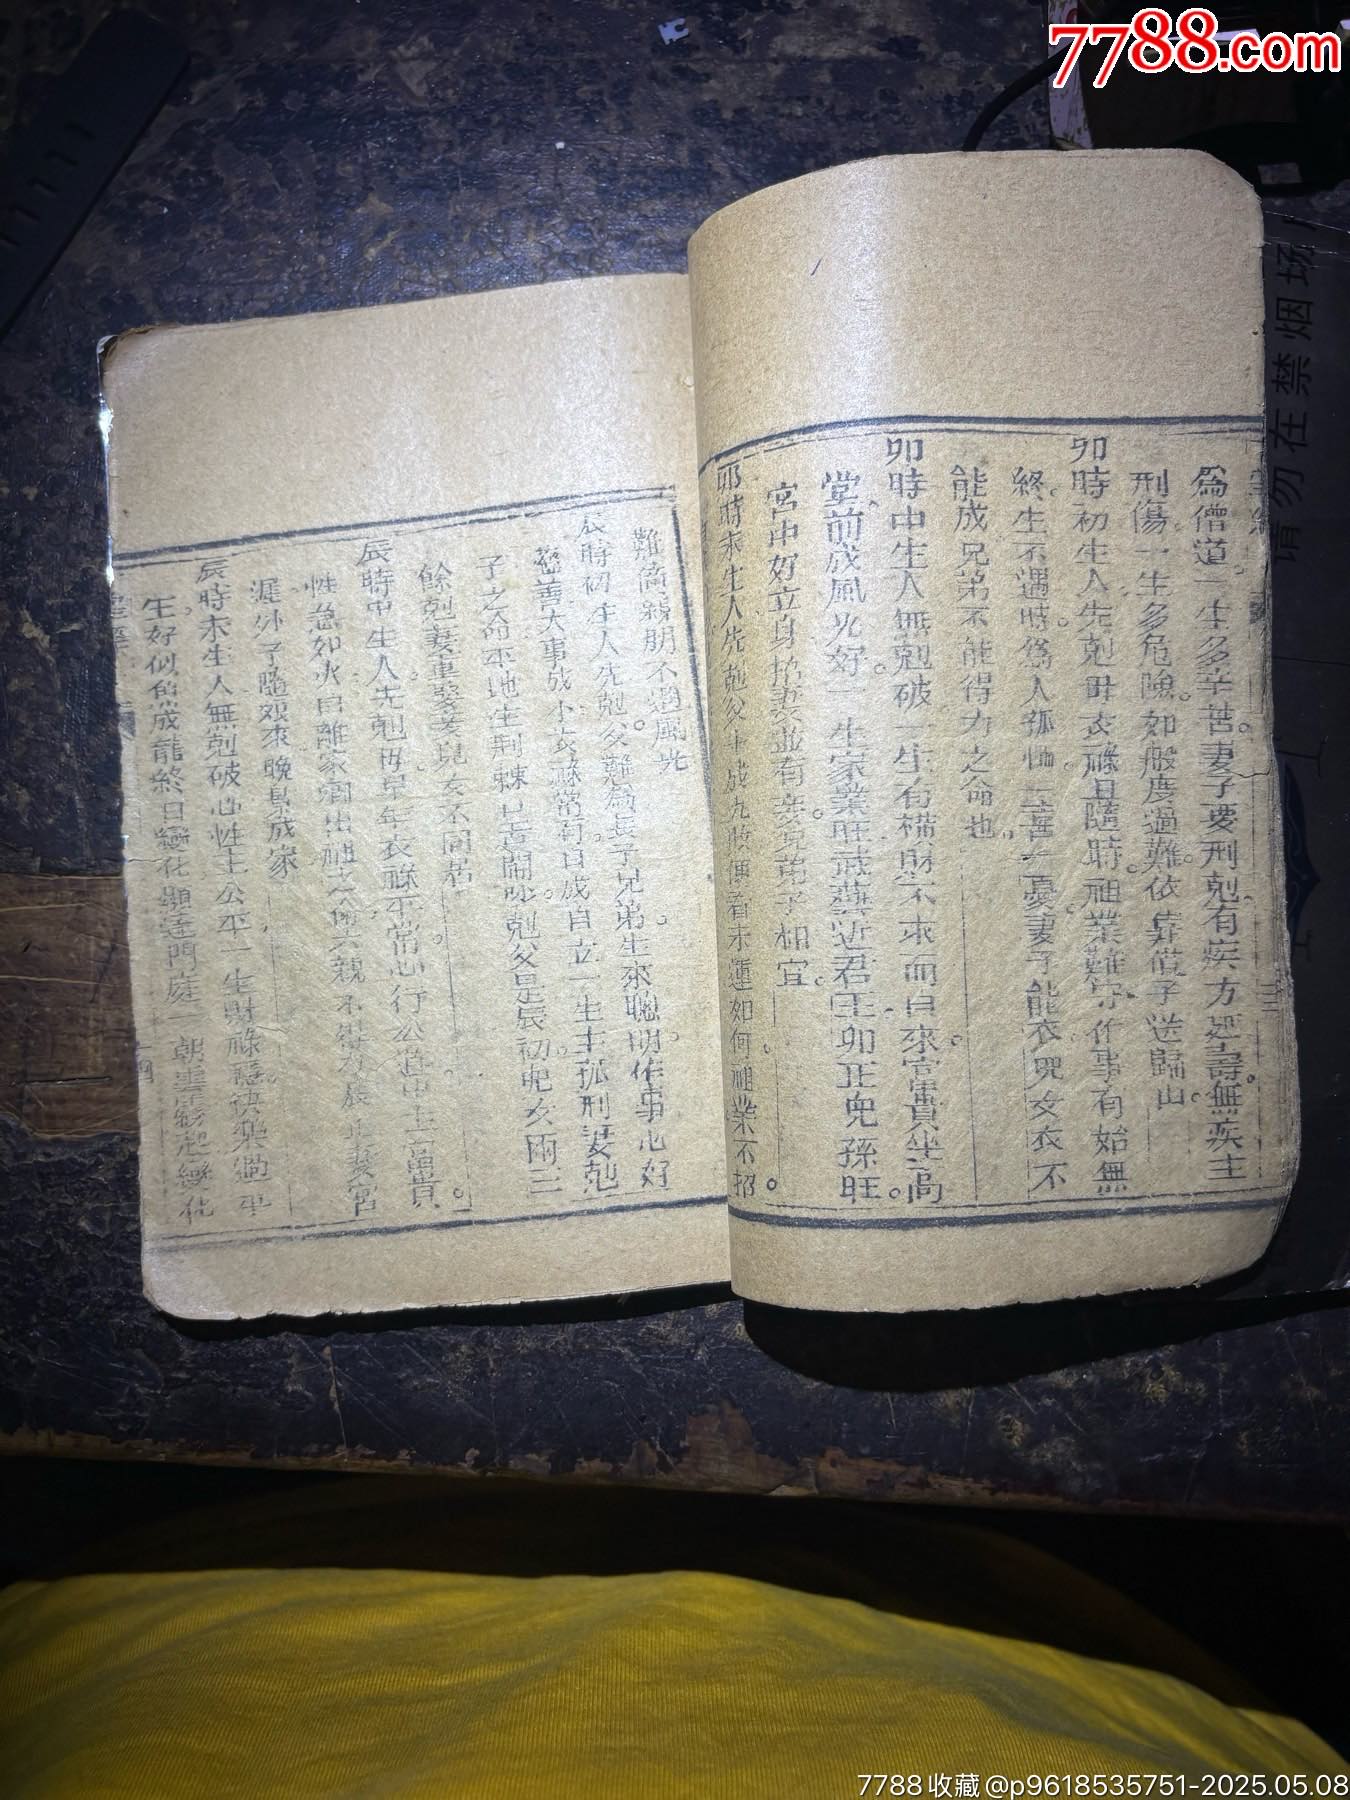 7788.com
请勿在禁烟场
為僧道一生多辛苦妻子要刑剋有疾方延壽無疾主
刑傷一生多危險如般度過難依靠借子送歸山
卯時初生人先剋母衣祿且隨時祖業難守作事有始無
終生不遇時為人孤恤二喜一憂妻子能衣兒女衣不
能成兄弟不能得力之命也
卯時中生人無剋破一生有橫財不求而自來官貴坐高
堂前成風光好一生家業旺武藝近君王卯正兒孫旺
宮中好立身招妻並有妾兒弟子相宜
卯時末生人先剋父生成九敗運看末運如何祖業不招
難為親朋不過風光
辰時初生人先剋父難為長子兄弟生來聰明作事心好
慈善大事成小衣祿常有白成自立一生主孤刑妻剋
子之命平地生荊棘是非鬧吵剋父是辰初兒女兩三
餘剋妻重娶妻兒女不同居
辰時中生人先剋母早年衣祿平常心行公道中主富貴
性急如火自離家祖出祖之命六親不得力辰正妻宮
遲外子隨娘來晚景成家
辰時末生人無剋破心性主公平一生財祿穩快樂過平
生好似魚成龍終日變化顯達門庭一朝雲霧起變化
7788收藏@p9618535751-2025.05.08